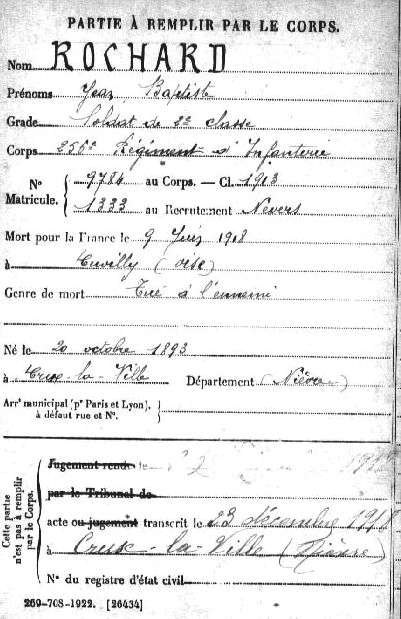 PARTIE À REMPLIR PAR LE CORPS.
Nom ROCHARD
Prénoms Jean Baptiste
Grade Soldat de 2e classe
Corps 256e Régiment d'Infanterie
N° Matricule. { 9784 au Corps. — Cl. 1913
1333 au Recrutement Nevers
Mort pour la France le 9 Juin 1918
à Cuvilly (Oise)
Genre de mort Tué à l'ennemi
Né le 20 octobre 1893
à Crux-la-Ville Département (Nièvre)
Arrt municipal (pr Paris et Lyon),
à défaut rue et N°.
Cette partie
n'est pas à remplir
par le Corps.
Jugement rendu le
par le Tribunal de
acte ou jugement transcrit le 23 décembre 1918
à Crux-la-Ville (Nièvre)
N° du registre d'état civil
269-708-1922. [26434]